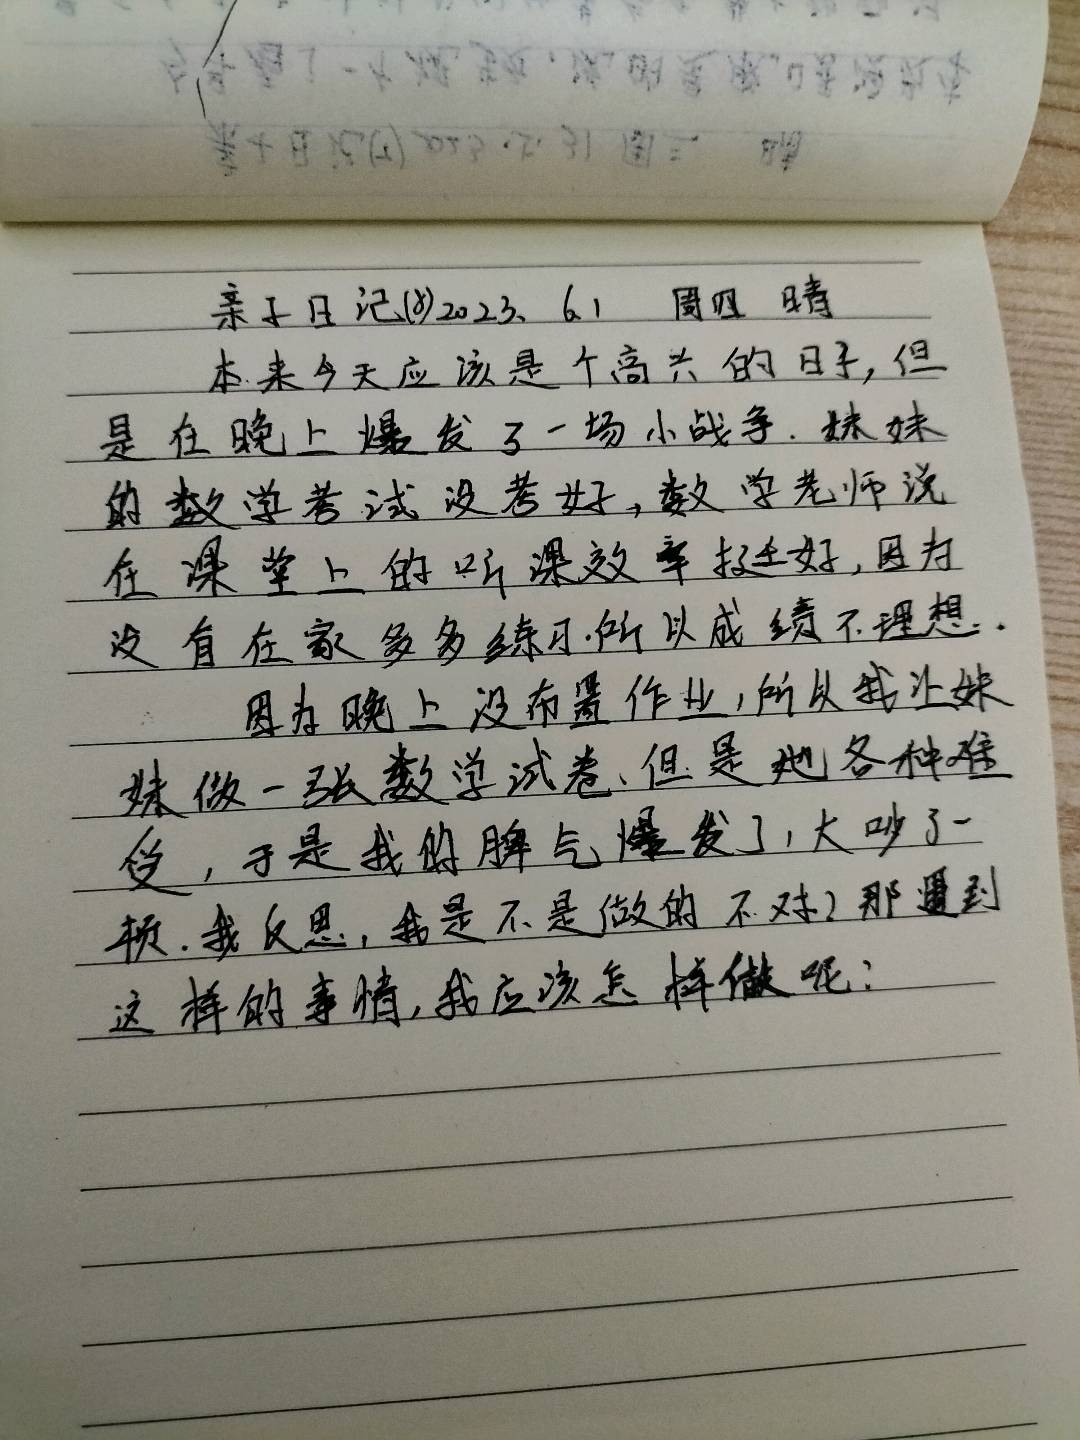 亲子日记(8)2023、6、1 周四 晴
本来今天应该是个高兴的日子,但
是在晚上爆发了一场小战争.妹妹
的数学考试没考好,数学老师说
在课堂上的听课效率挺好,因为
没有在家多多练习.所以成绩不理想.
因为晚上没布置作业,所以我让妹
妹做一张数学试卷、但是她各种难
受,于是我的脾气爆发了,大吵了一
顿.我反思,我是不是做的不对?那遇到
这样的事情,我应该怎样做呢?